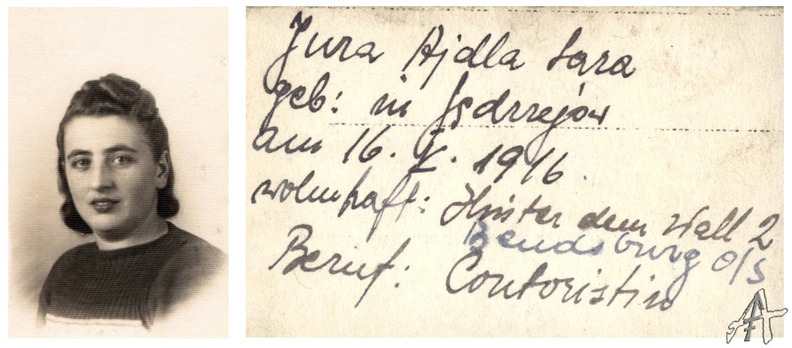 Jura Ajdla Sara
geb: in Jędrzejów
am 16. X. 1916.
wohnhaft: Hinter dem Wall 2
Bendsburg O/S
Beruf: Contoristin